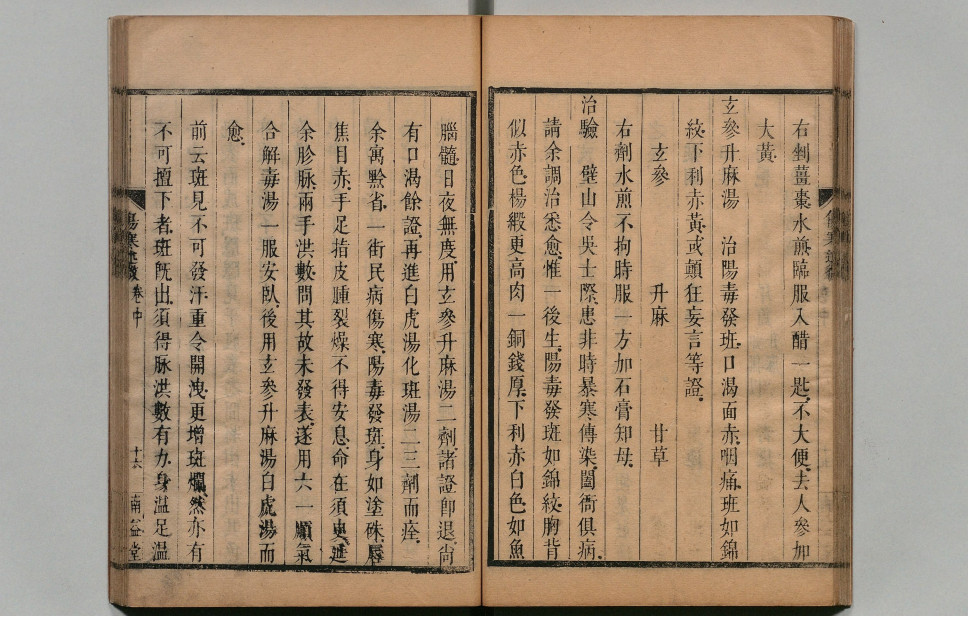 右剉薑棗水煎臨服入醋一匙不大便去人參加
大黃
玄參升麻湯　治陽毒發斑口渴面赤咽痛斑如錦
紋下利赤黃或顛狂妄言等證
玄參　升麻　甘草
右劑水煎不拘時服一方加石膏知母
治驗　壁山令吳士際患非時暴寒傳染闔衙俱病
請余調治悉愈惟一後生陽毒發斑如錦紋胸背
似赤色楊緞更高肉一銅錢厚下利赤白色如魚
腦髓日夜無度用玄參升麻湯二劑諸證即退尚
有口渴餘證再進白虎湯化斑湯二三劑而痊
余寓黔省一街民病傷寒陽毒發斑身如塗硃唇
焦目赤手足指皮腫裂燥不得安息命在須臾延
余胗脉兩手洪數問其故未發表遂用六一順氣
合解毒湯一服安臥後用玄參升麻湯白虎湯而
愈
前云斑見不可發汗重令開洩更增斑爛然亦有
不可擅下者斑旣出須得脉洪數有力身溫足溫
卷中
十六
南益堂